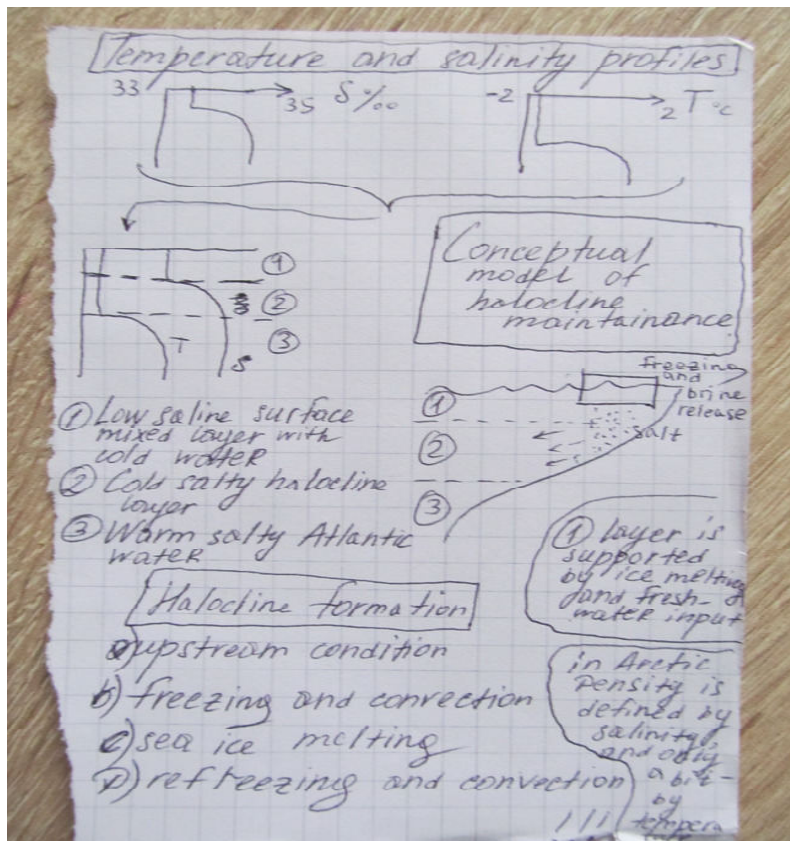 Temperature and salinity profiles
33 35 S‰
-2 2 T°C
1
2
3
T S
Conceptual
model of
halocline
maintainance
freezing
and
brine
release
salt
1
2
3
① Low saline surface
mixed layer with
cold water
② Cold salty halocline
layer
③ Warm salty Atlantic
water
① layer is
supported
by ice melting
and fresh-
water input
Halocline formation
a) upstream condition
b) freezing and convection
c) sea ice melting
D) refreezing and convection
in Arctic
Density is
defined by
salinity,
and only
a bit
by
tempera
ture